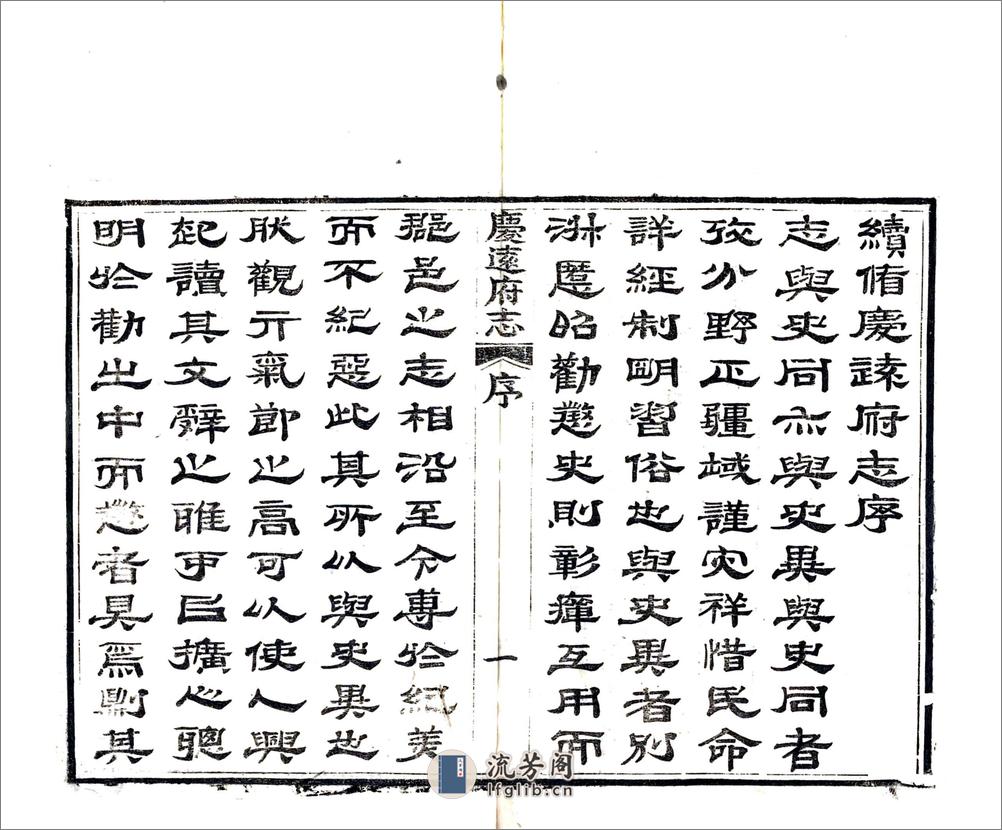 續脩慶遠府志序
志與史同亦與史異與史同者
攷分野正疆域謹灾祥惜民命
詳經制明習俗也與史異者別
淑慝昭勸懲史則彰癉互用而
慶遠府志 序 一
郡邑之志相沿至今專於紀美
而不紀惡此其所以與史異也
肰觀亓氣節之高可以使人興
起讀其文辭之雅可㠯擴心聰
明於勸之中而懲者具焉則其
流芳阁
lfglib.cn